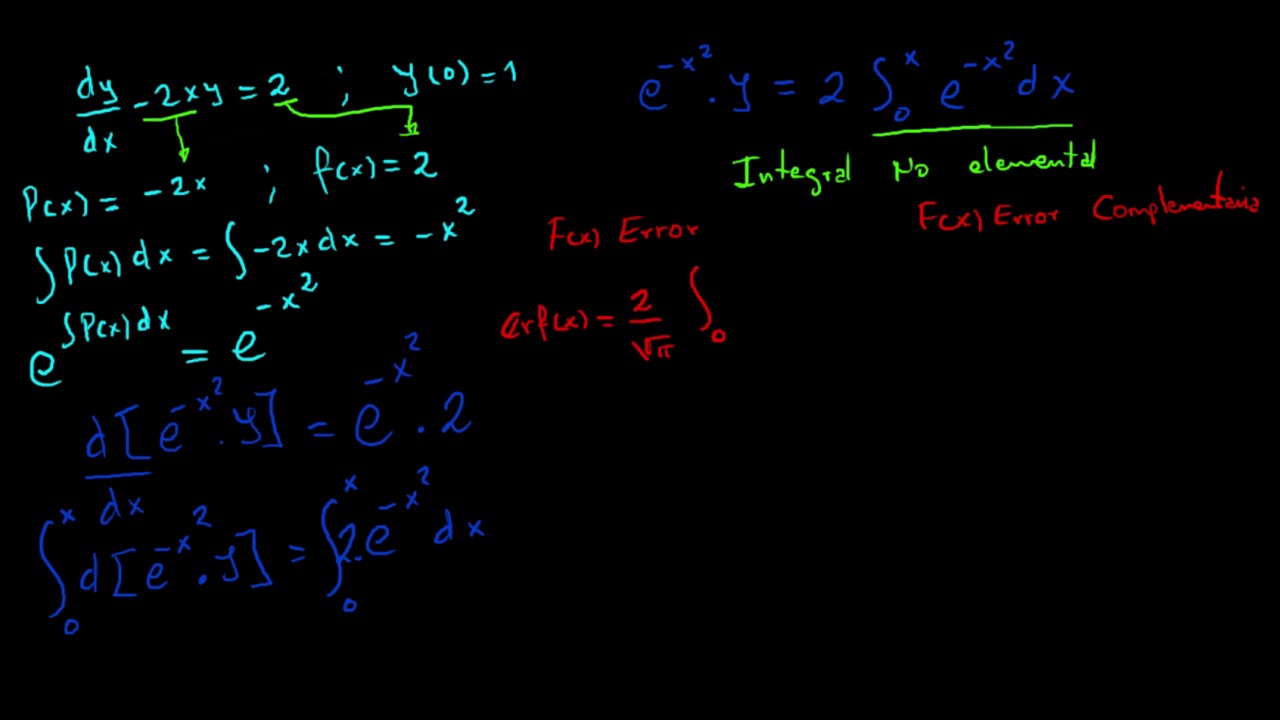 dy/dx - 2xy = 2 ; y(0) = 1
P(x) = -2x ; f(x) = 2
∫P(x)dx = ∫-2xdx = -x²
e^∫P(x)dx = e^-x²
d[e^-x² . y]/dx = e^-x² . 2
∫₀ˣ d[e^-x² . y] = ∫₀ˣ 2.e^-x² dx
e^-x² . y = 2 ∫₀ˣ e^-x² dx
Integral No elemental
F(x) Error
F(x) Error Complementaria
erf(x) = 2/√π ∫₀